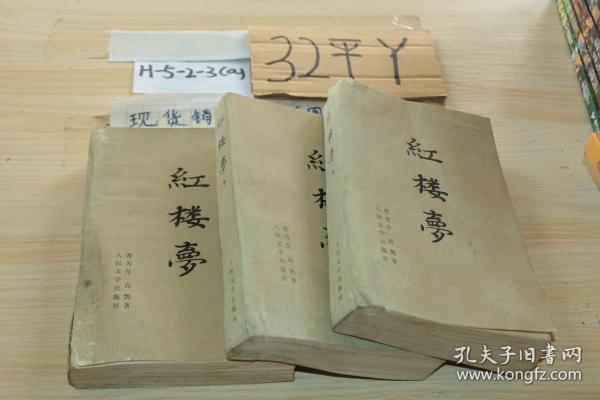 32平丫
H-5-2-3(a)
现货销
紅楼夢
曹雪芹 高鹗著
人民文学出版社
紅楼夢
紅楼夢
曹雪芹 高鹗著
人民文学出版社
人民文学出版社
紅楼夢
曹雪芹 高鹗著
人民文学出版社
孔夫子旧书网
www.kongfz.com